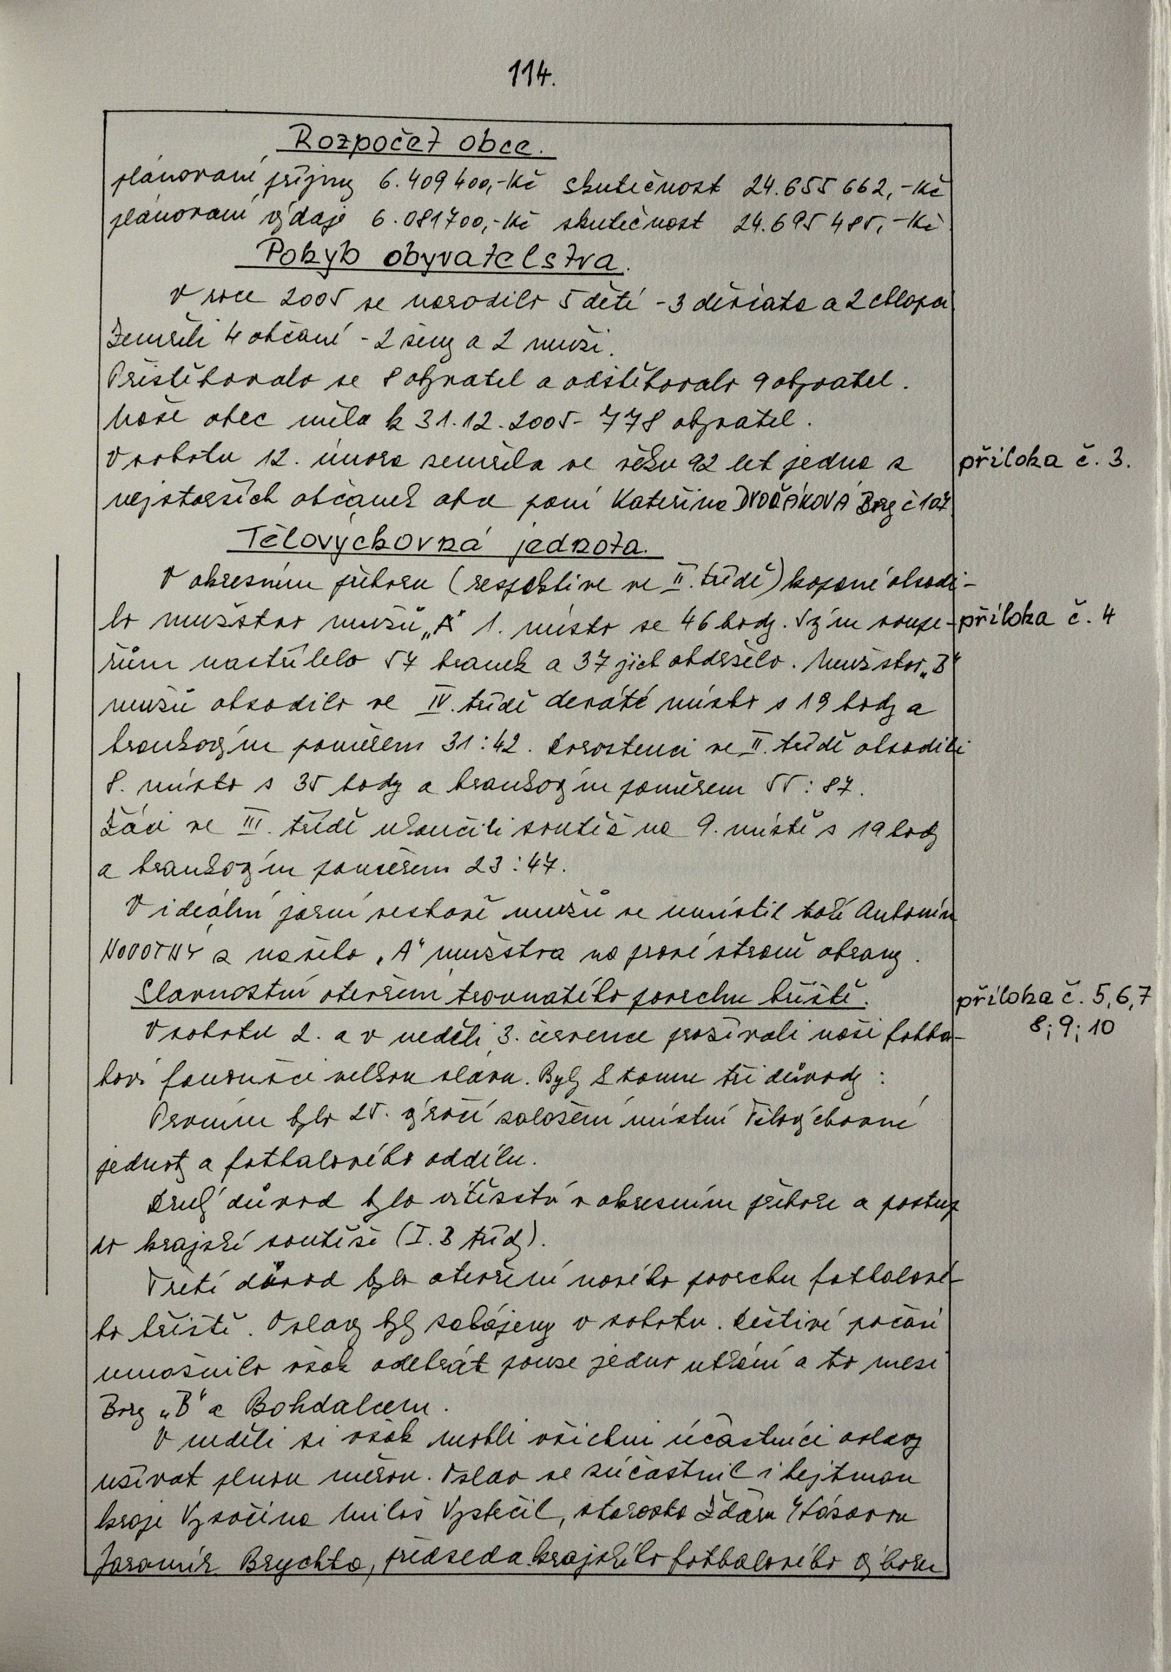 114.
Rozpočet obce.
plánovaní příjmy 6.409400,-Kč skutečnost 24.655 662,-Kč
plánovaní výdaje 6.081700,-Kč skutečnost 24.695 485,-Kč
Pohyb obyvatelstva.
V roce 2005 se narodilo 5 dětí - 3 děvčata a 2 chlapci
Zemřeli 4 občané - 2 ženy a 2 muži.
Přistěhovalo se 8 obyvatel a odstěhovalo 9 obyvatel.
Naše obec měla k 31.12.2005 - 778 obyvatel.
V sobotu 12. února zemřela ve věku 92 let jedna z
příloha č. 3.
nejstarších občanek obce paní Kateřina DVOŘÁKOVÁ Bory č 107
Tělovýchovná jednota.
V okresním přeboru (respektive ve II. třídě) kopané obsadi-
lo mužstvo mužů „A" 1. místo se 46 body. Svým soupe-
příloha č. 4
řům nastřílelo 57 branek a 37 jich obdrželo. Mužstvo „B"
mužů obsadilo ve IV. třídě deváté místo s 19 body a
brankovým poměrem 31:42. Dorostenci ve II. třídě obsadili
8. místo s 35 body a brankovým poměrem 55:87.
Žáci ve III. třídě ukončili soutěž na 9. místě s 19 body
a brankovým poměrem 23:47.
V ideální jarní sestavě mužů se umístil též Antonín
NOVOTNÝ z našeho „A" mužstva na pravé straně obrany.
Slavnostní otevření travnatého povrchu hřiště.
příloha č. 5,6,7
8; 9; 10
V sobotu 2. a v neděli 3. července prožívali naši fotba-
loví fanoušci velkou slávu. Byly k tomu tři důvody:
Prvním bylo 25. výročí založení místní Tělovýchovné
jednoty a fotbalového oddílu.
Druhý důvod bylo vítězství v okresním přeboru a postup
do krajské soutěže (I. B třídy).
Třetí důvod bylo otevření nového povrchu fotbalové-
ho hřiště. Oslavy byly zahájeny v sobotu. Deštivé počasí
umožnilo však odehrát pouze jedno utkání a to mezi
Bory „B" a Bohdalcem.
V neděli si však mohli všichni účastníci oslavy
užívat plnou měrou. Oslav se zúčastnil i hejtman
kraje Vysočina Miloš Vystrčil, starosta Žďáru n/Sázavou
Jaromír Brychta, předseda krajského fotbalového výboru